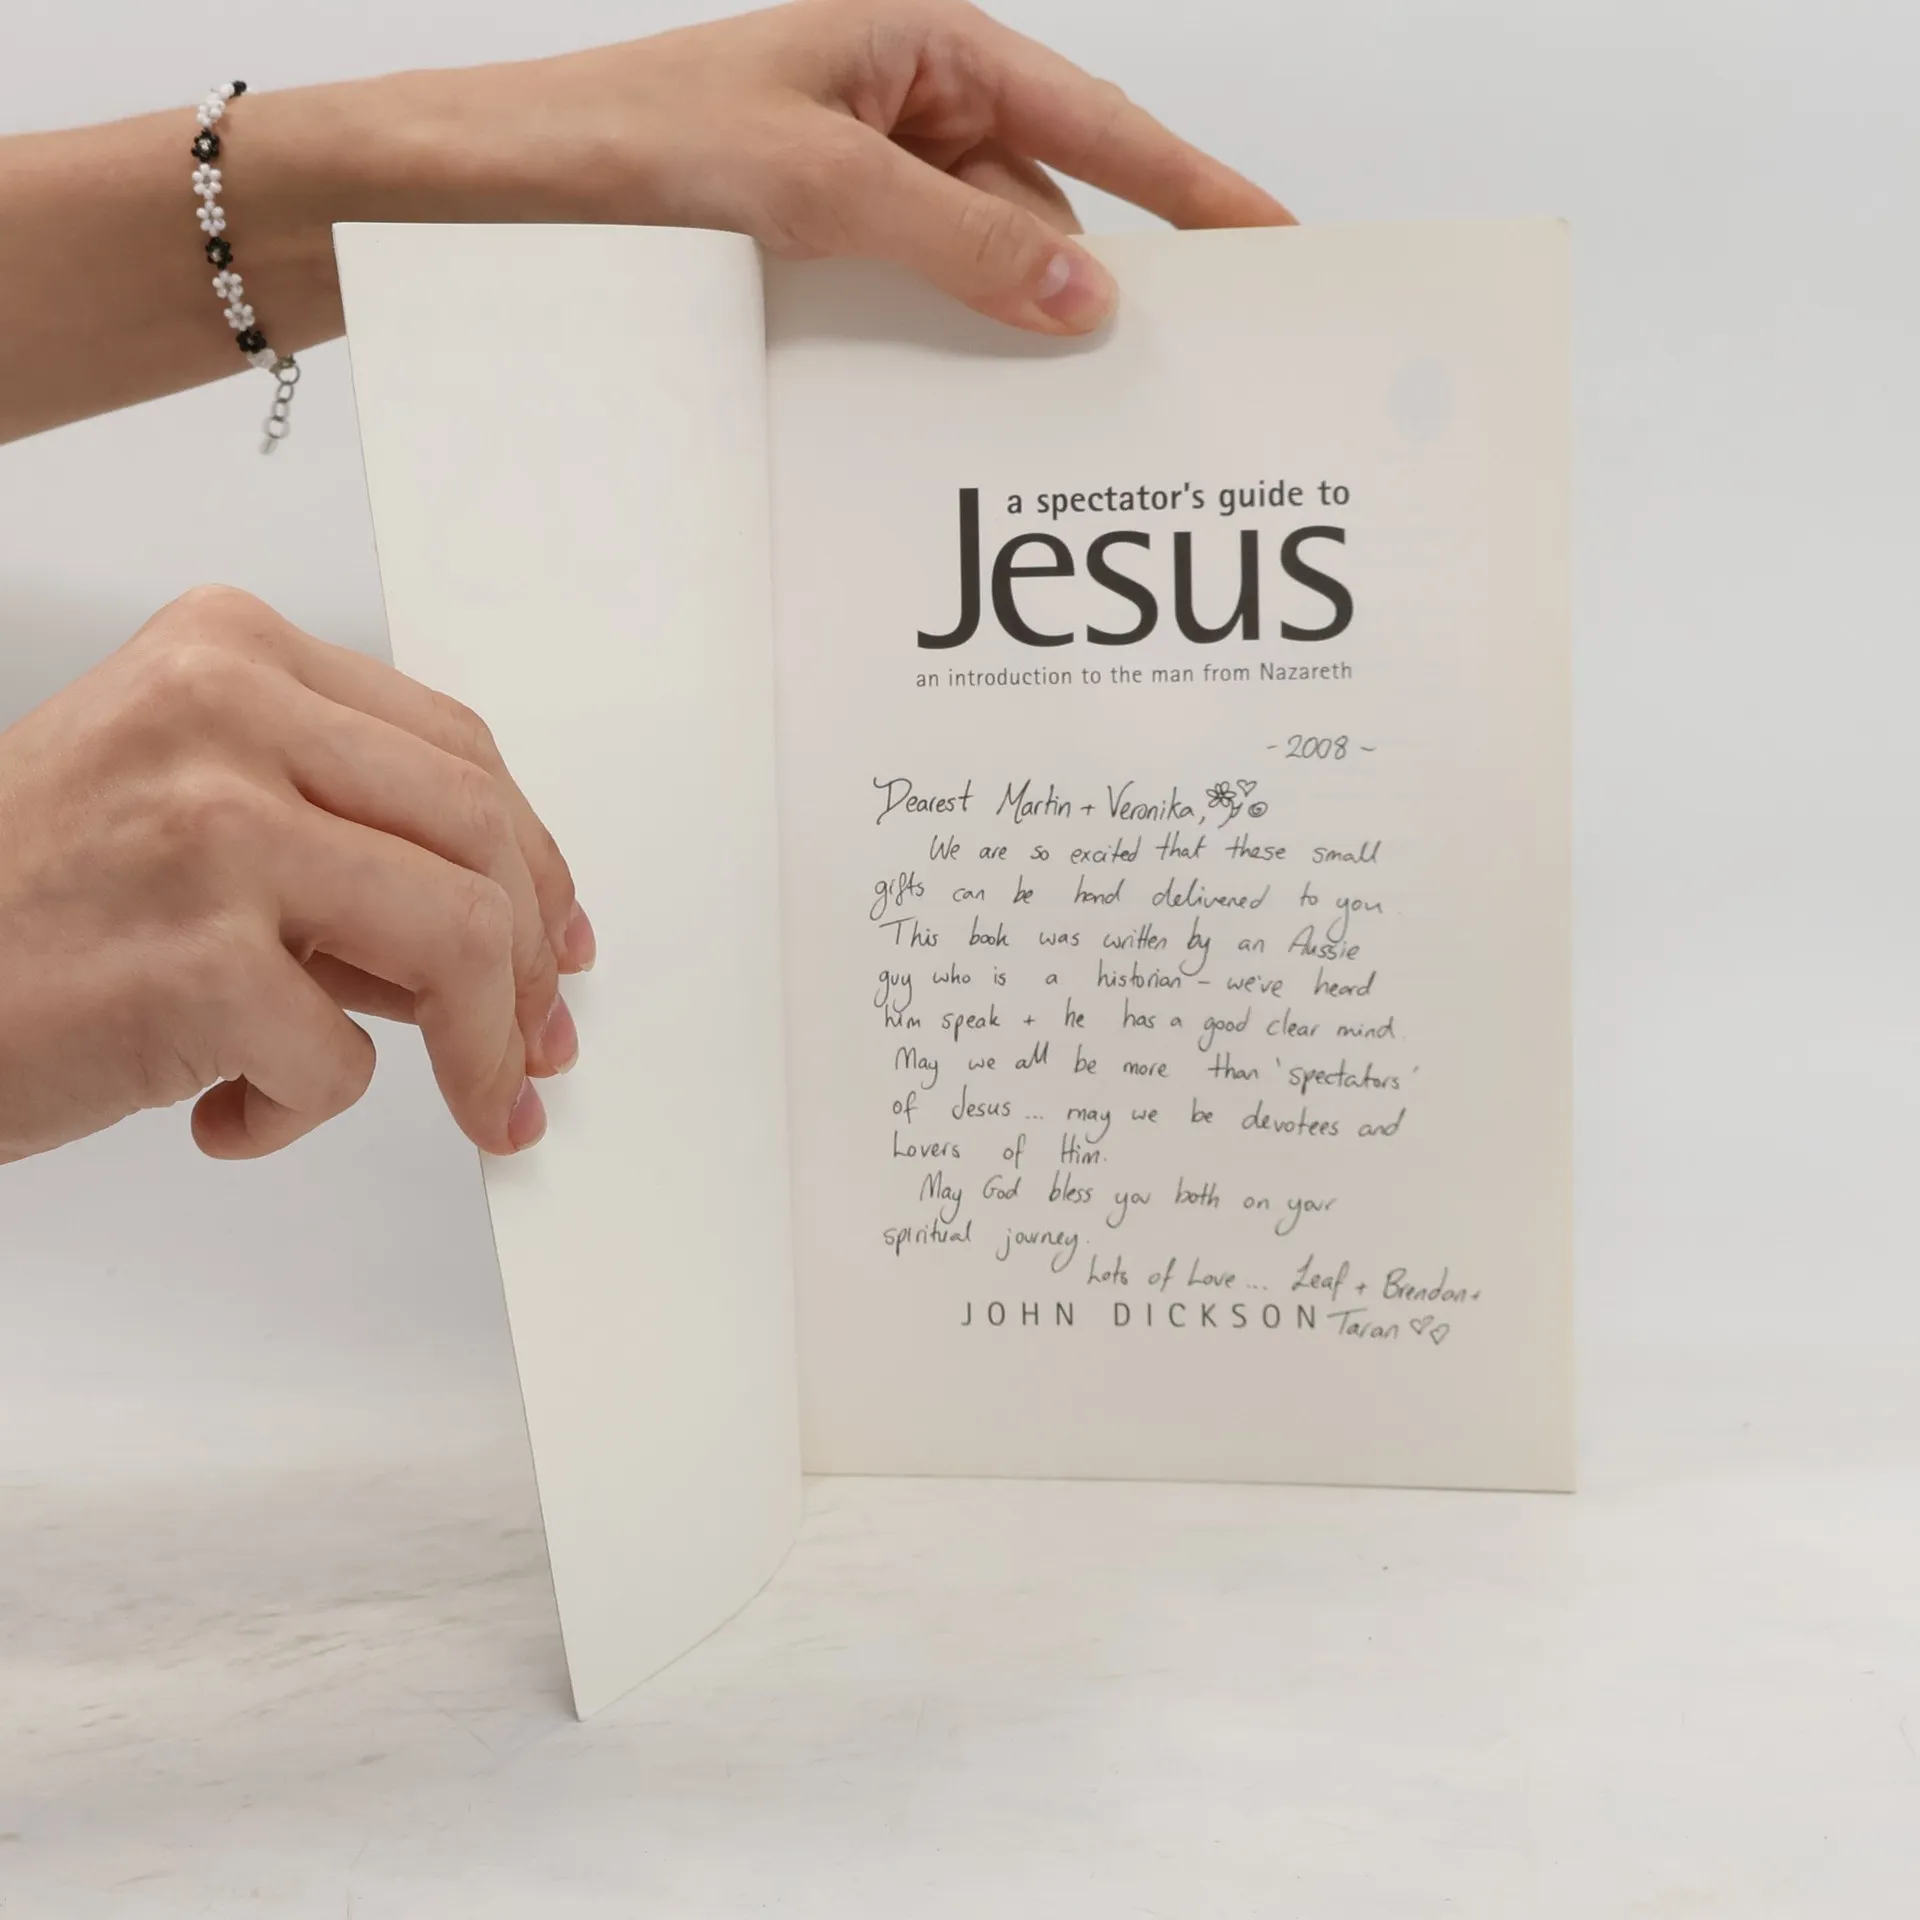 a spectator's guide to
Jesus
an introduction to the man from Nazareth
- 2008 ~
Dearest Martin + Veronika,
We are so excited that these small
gifts can be hand delivered to you.
This book was written by an Aussie
guy who is a historian - we've heard
him speak + he has a good clear mind.
May we all be more than 'spectators'
of Jesus ... may we be devotees and
Lovers of Him.
May God bless you both on your
spiritual journey.
Lots of Love ... Leaf + Brendan +
JOHN DICKSON Taran